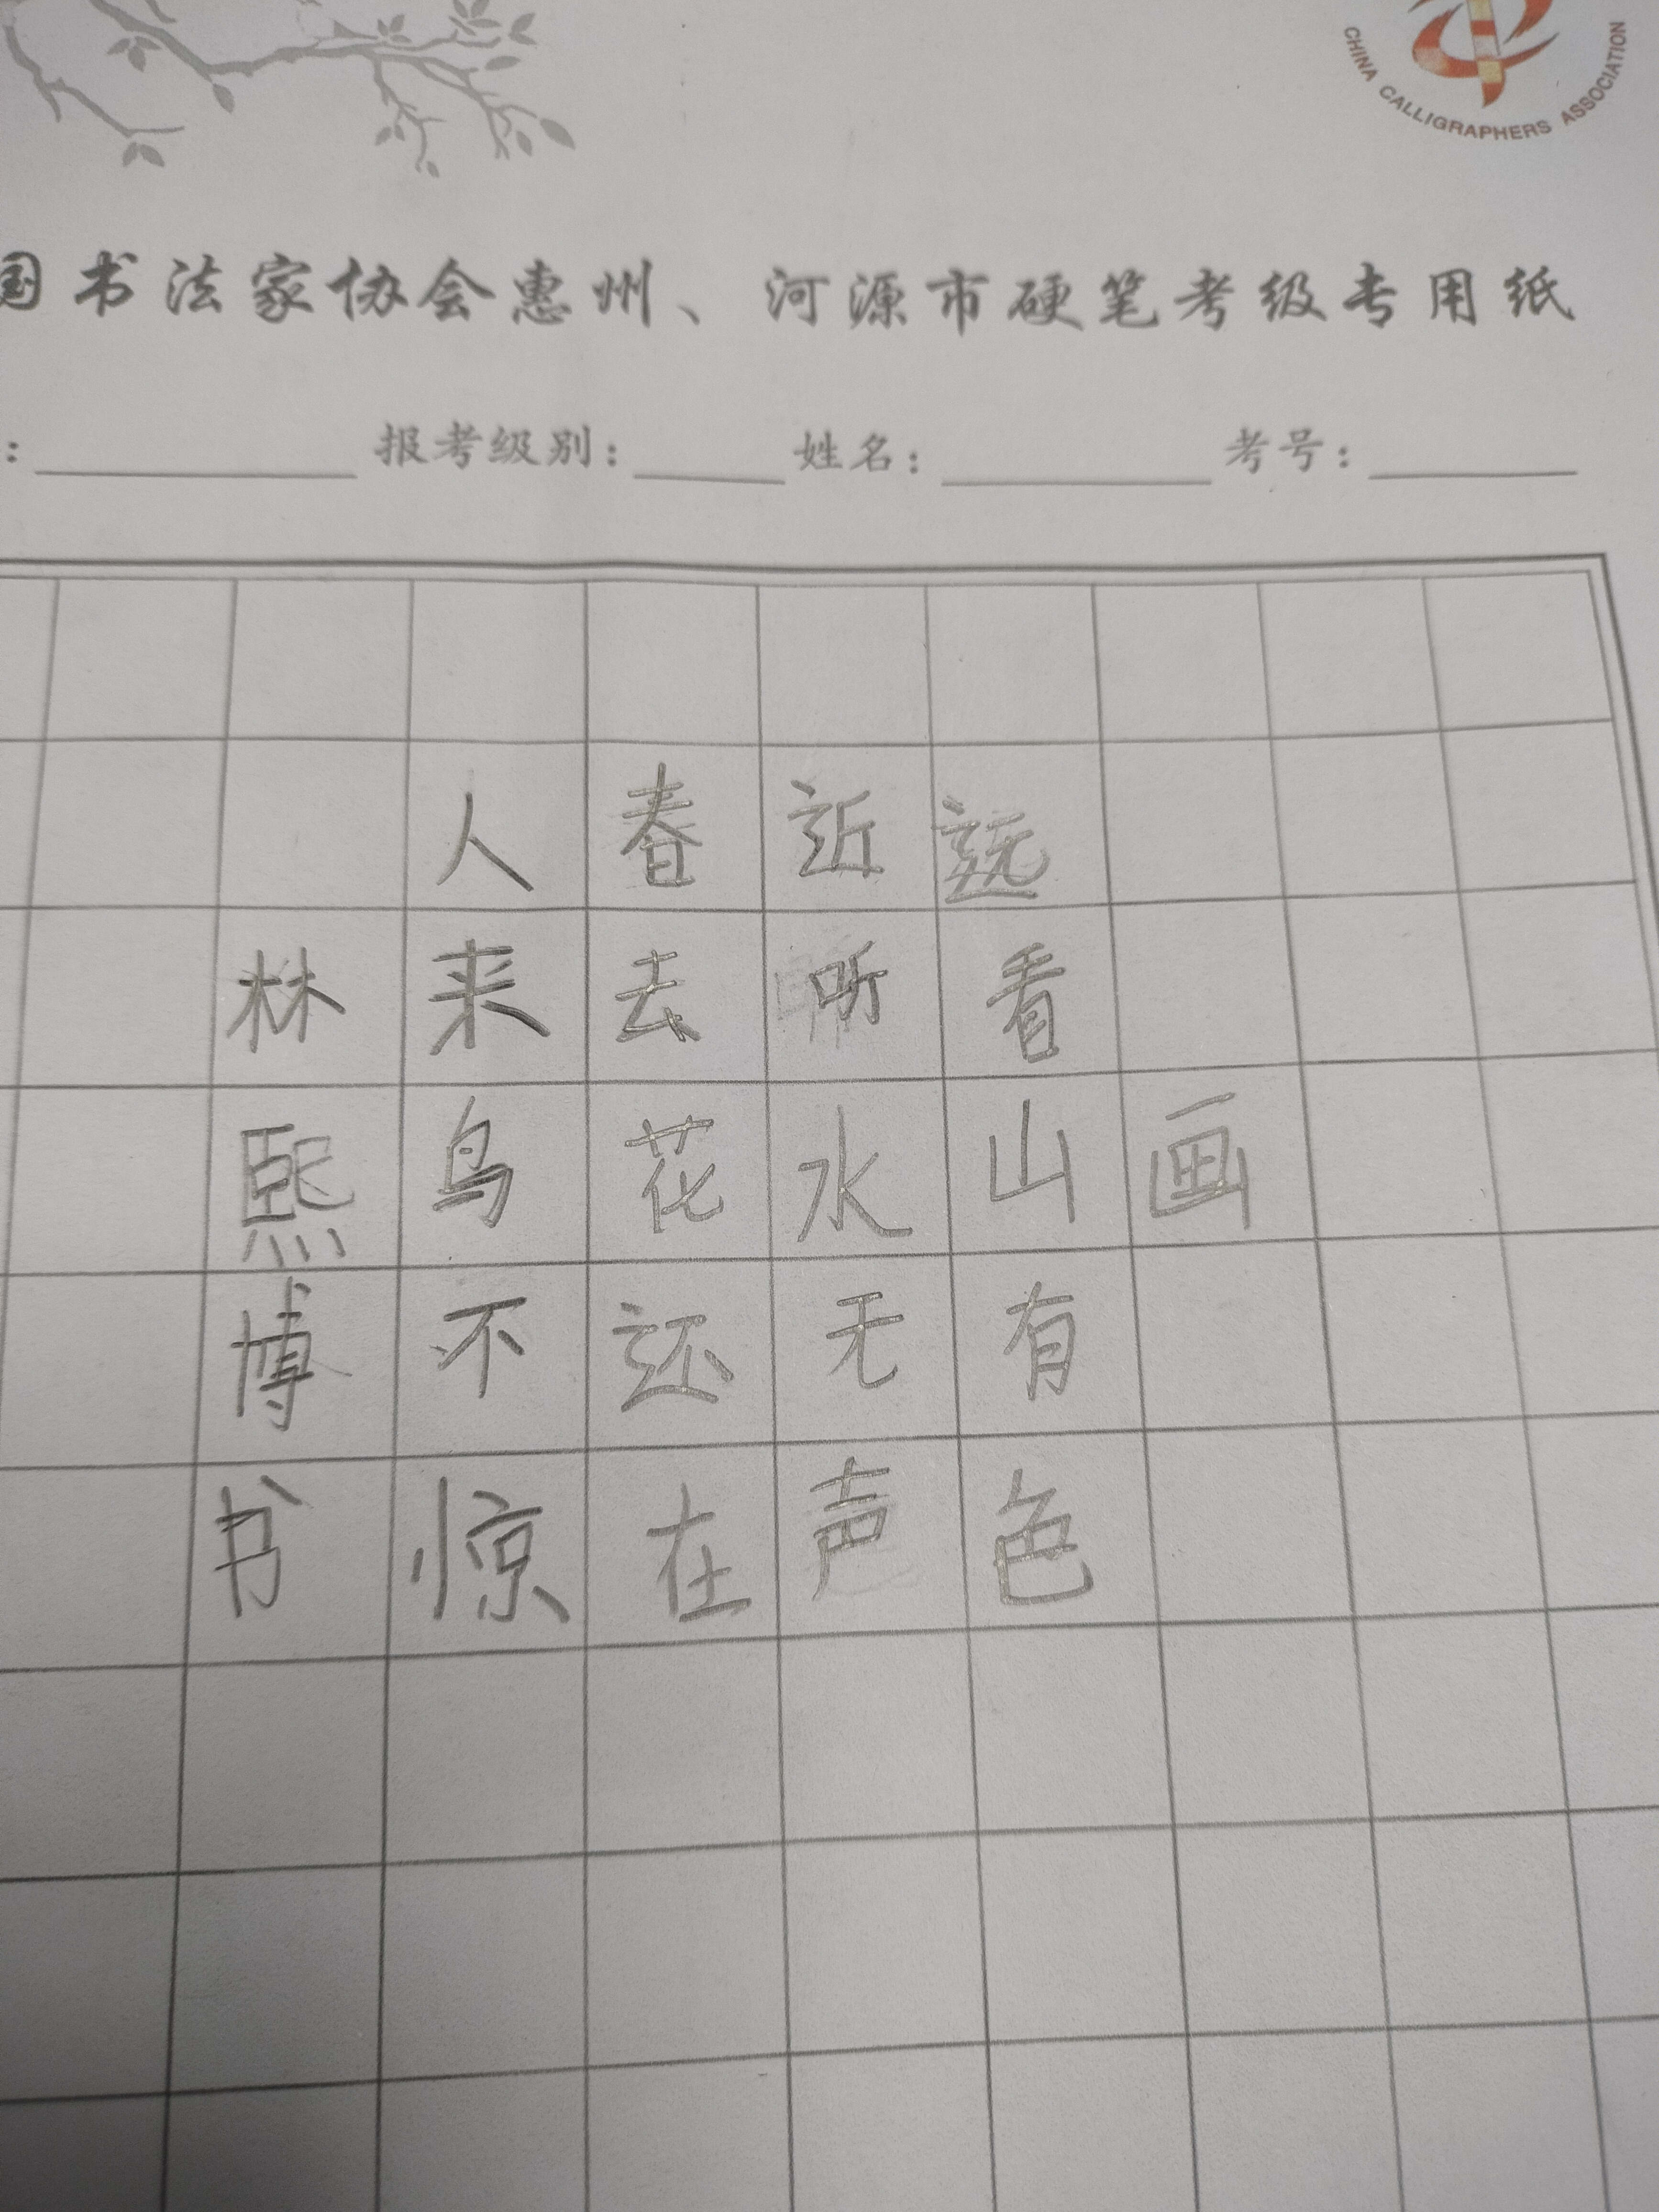 CHINA CALLIGRAPHERS ASSOCIATION
国书法家协会惠州、河源市硬笔考级专用纸
: 报考级别: 姓名: 考号:
画
远看山有色
近听水无声
春去花还在
人来鸟不惊
林熙博书